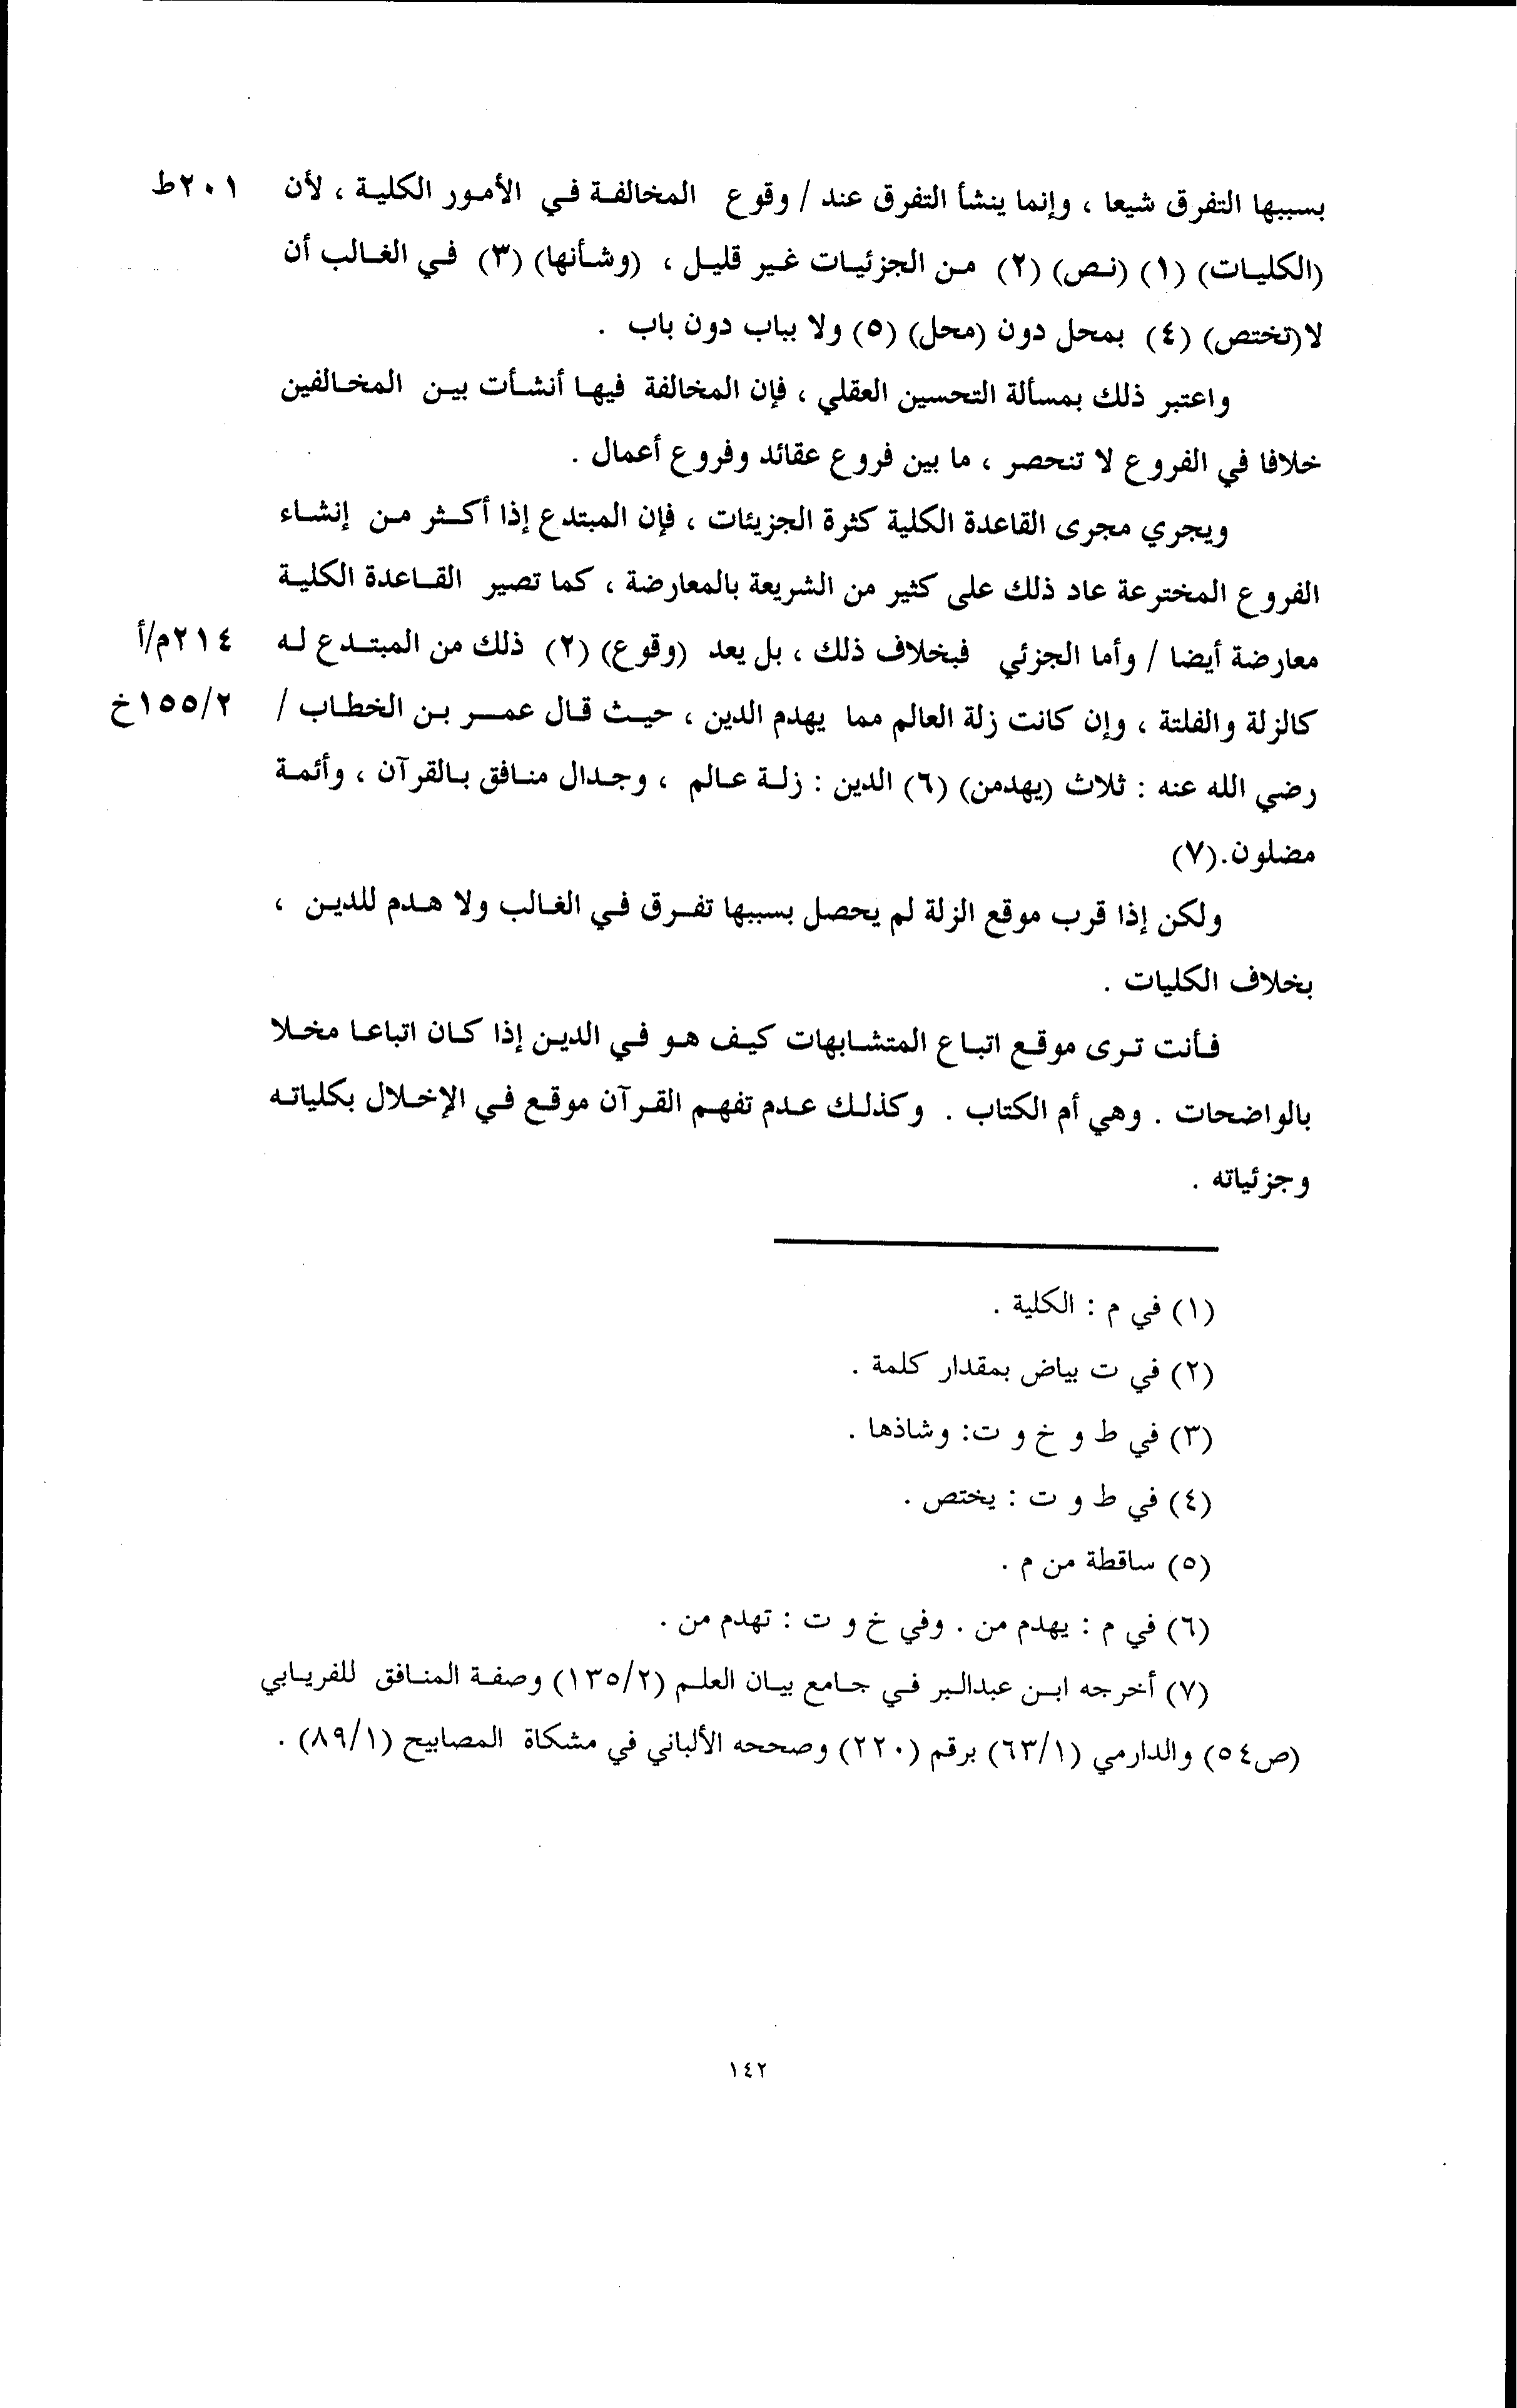 بسببها التفرق شيعا ، وإنما ينشأ التفرق عند / وقوع المخالفة في الأمور الكلية ، لأن ٢٠١ط
(الكليات) (١) (نص) (٢) من الجزئيات غير قليل ، (وشأنها) (٣) في الغالب أن
لا(تختص) (٤) بمحل دون (محل) (٥) ولا بباب دون باب .
واعتبر ذلك بمسألة التحسين العقلي ، فإن المخالفة فيها أنشأت بين المخالفين
خلافا في الفروع لا تنحصر ، ما بين فروع عقائد وفروع أعمال .
ويجري مجرى القاعدة الكلية كثرة الجزيئات ، فإن المبتدع إذا أكثر من إنشاء
الفروع المخترعة عاد ذلك على كثير من الشريعة بالمعارضة ، كما تصير القاعدة الكلية
معارضة أيضا / وأما الجزئي فبخلاف ذلك ، بل يعد (وقوع) (٢) ذلك من المبتدع له ٢١٤م/أ
كالزلة والفلتة ، وإن كانت زلة العالم مما يهدم الدين ، حيث قال عمر بن الخطاب / ١٥٥/٢خ
رضي الله عنه : ثلاث (يهدمن) (٦) الدين : زلة عالم ، وجدال منافق بالقرآن ، وأئمة
مضلون.(٧)
ولكن إذا قرب موقع الزلة لم يحصل بسببها تفرق في الغالب ولا هدم للدين ،
بخلاف الكليات .
فأنت ترى موقع اتباع المتشابهات كيف هو في الدين إذا كان اتباعا مخلا
بالواضحات . وهي أم الكتاب . وكذلك عدم تفهم القرآن موقع في الإخلال بكلياته
وجزئياته .
(١) في م : الكلية .
(٢) في ت بياض بمقدار كلمة .
(٣) في ط و خ و ت: وشاذها .
(٤) في ط و ت : يختص .
(٥) ساقطة من م .
(٦) في م : يهدم من . وفي خ و ت : تهدم من .
(٧) أخرجه ابن عبدالبر في جامع بيان العلم (١٣٥/٢) وصفة المنافق للفريابي
(ص٥٤) والدارمي (٦٣/١) برقم (٢٢٠) وصححه الألباني في مشكاة المصابيح (٨٩/١) .
١٤٢